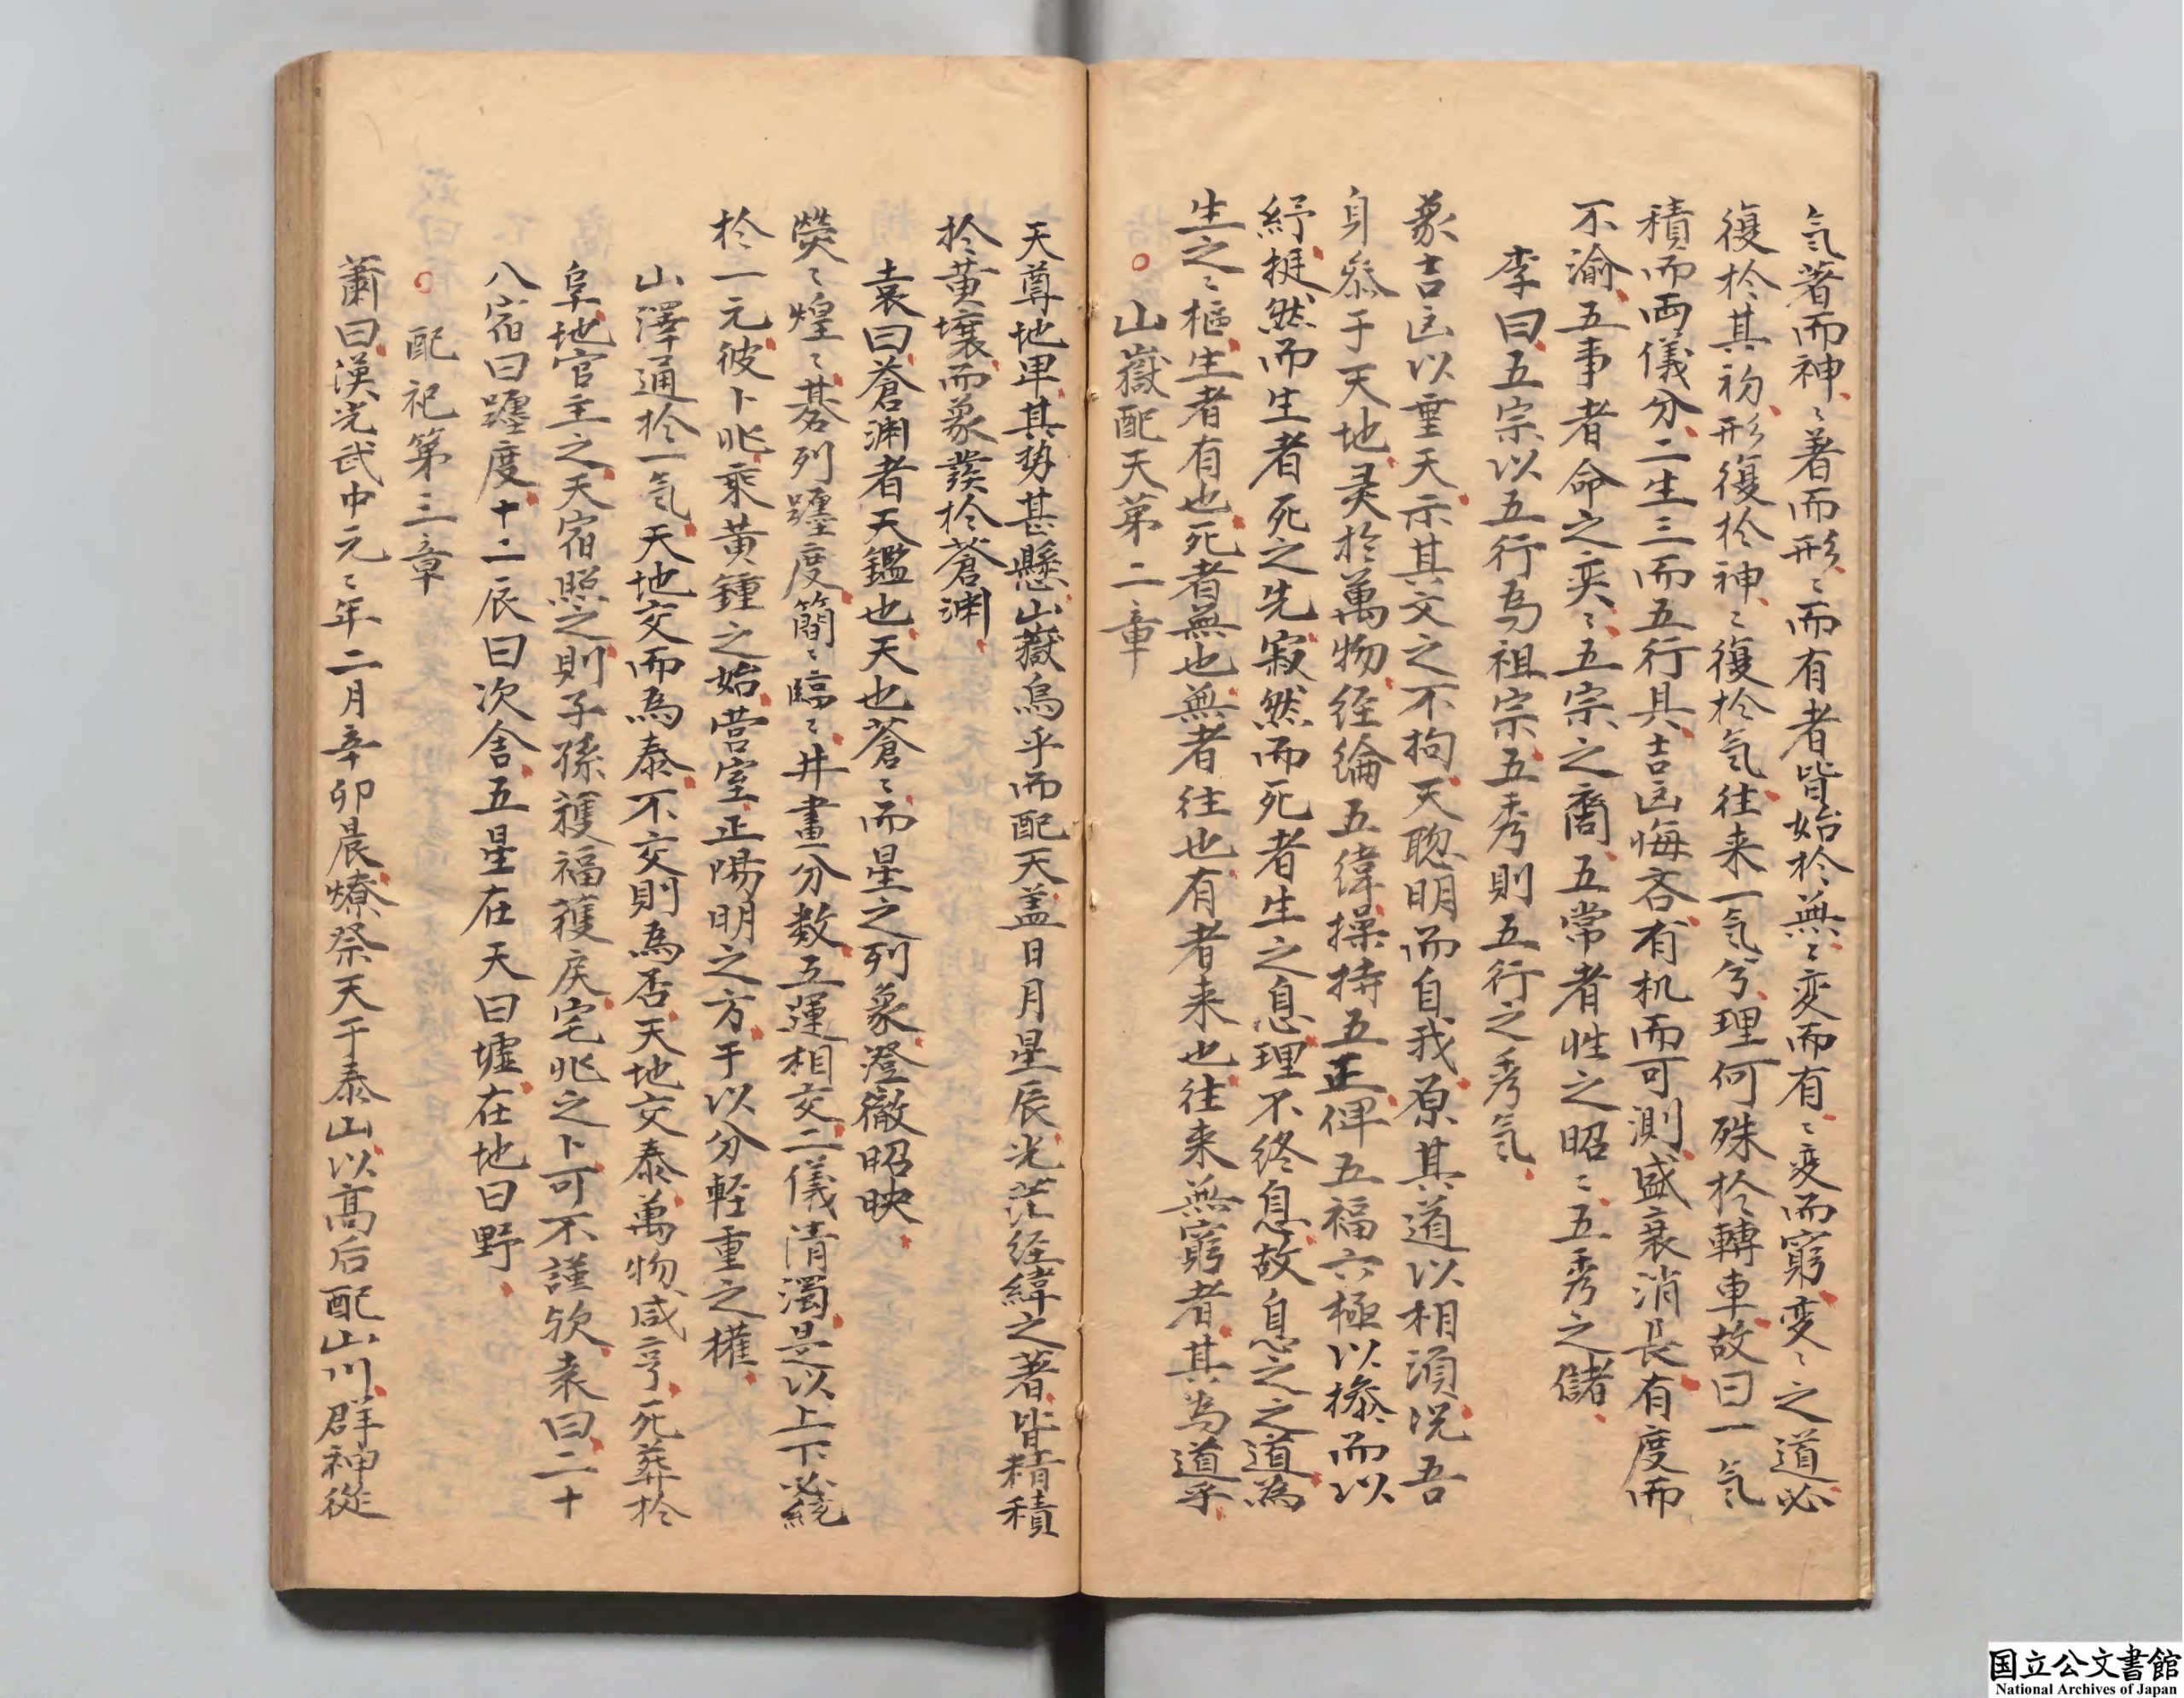 気著而神〻著而形〻而有者皆始於無〻変而有〻変而窮変〻之道必
復於其初形復於神〻復於気往来一気兮理何殊於轉車故曰一気
積而両儀分二生三而五行具吉凶悔吝有机而可測盛衰消長有度而
不渝五事者命之奕〻五宗之裔五常者性之昭〻五秀之儲
李曰五宗以五行為祖宗五秀則五行之秀気
象吉凶以垂天示其文之不拘天聡明而自我原其道以相須况吾
身参于天地灵於萬物経綸五緯操持五正俾五福六極以摻而以
紓挺然而生者死之先寂然而死者生之息理不終息故息之之道為
生之〻樞生者有也死者無也無者往也有者来也往来無窮者其為道乎
○山嶽配天第二章
天尊地卑其勢甚懸山嶽烏乎而配天盖日月星辰光茫経緯之著皆精積
於黄壌而象發於蒼渕
袁曰蒼渕者天鑑也天也蒼〻而星之列象澄徹昭映
熒〻煌〻碁列躔度簡〻臨〻井畫分数五運相交二儀清濁是以上下必繞
於一元彼卜兆乘黄鍾之始営室正陽明之方于以分軽重之權
山澤通於一気天地交而為泰不交則為否天地交泰萬物咸亨死葬於
阜地官主之天宿照之則子孫獲福獲戻宅兆之卜可不謹欤袁曰二十
八宿曰躔度十二辰曰次舎五星在天曰墟在地曰野
○配祀第三章
蕭曰漢光武中元〻年二月辛卯晨燎祭天于泰山以高后配山川群神從
国立公文書館
National Archives of Japan